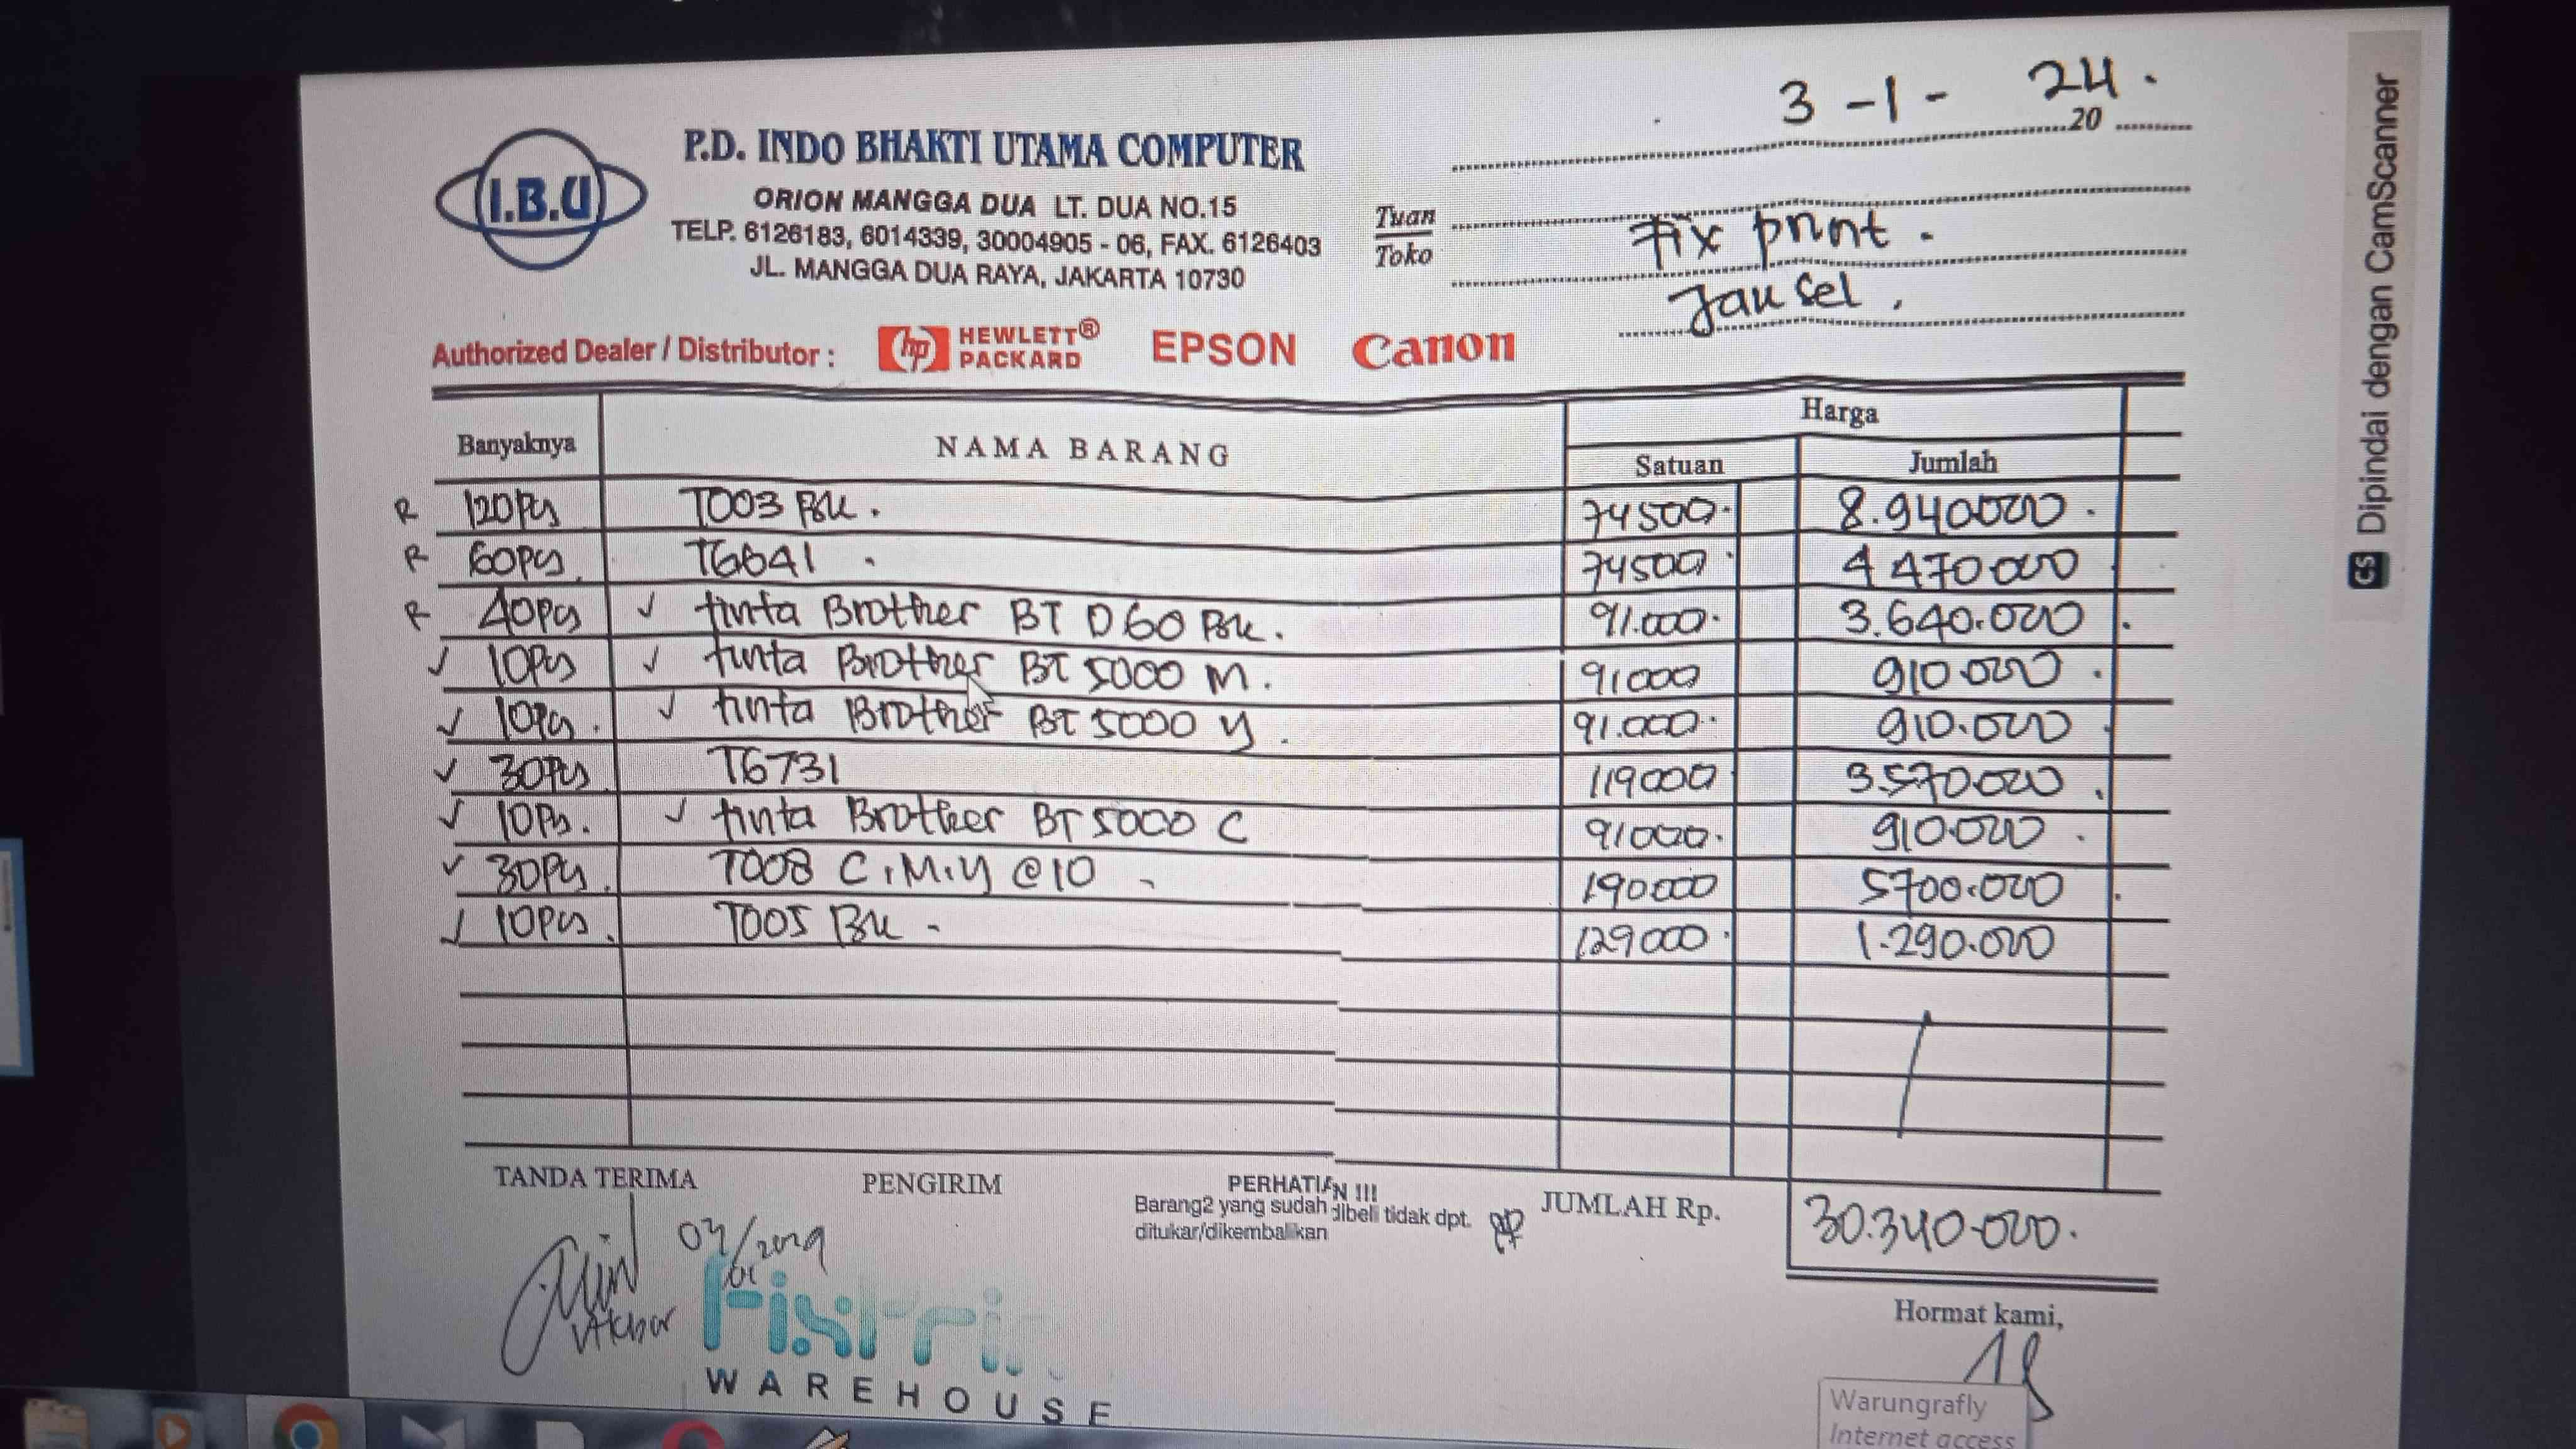 3 - 1 - 24.
20
I.B.U
P.D. INDO BHAKTI UTAMA COMPUTER
ORION MANGGA DUA LT. DUA NO.15
TELP. 6126183, 6014339, 30004905 - 06, FAX. 6126403
JL. MANGGA DUA RAYA, JAKARTA 10730
Tuan
Toko
Fix print.
Jaksel.
Authorized Dealer / Distributor : hp HEWLETT® PACKARD EPSON Canon
Banyaknya NAMA BARANG Harga
Satuan Jumlah
R 120Pcs T003 Bk. 74500. 8.940000.
R 60pcs T6641. 74500 4470000
R 40pcs ✓ tinta Brother BT D60 Bk. 91.000. 3.640.000.
✓ 10Pcs ✓ tinta Brother BT 5000 M. 91000 910.000.
✓ 10pcs. ✓ tinta Brother BT 5000 Y. 91.000. 910.000
✓ 30Pcs T6731 119000 3.570.000.
✓ 10Pcs. ✓ tinta Brother BT 5000 C 91000. 910.000.
✓ 30Pcs. T008 C,M,Y @10 190000 5700.000
✓ 10pcs. T005 Bk - 129000. 1.290.000
TANDA TERIMA PENGIRIM PERHATIAN !!!
Barang2 yang sudah dibeli tidak dpt.
ditukar/dikembalikan
JUMLAH Rp. 30.340.000.
Akbar
WAREHOUSE
Hormat kami,
Warungrafly
Internet access
CS Dipindai dengan CamScanner